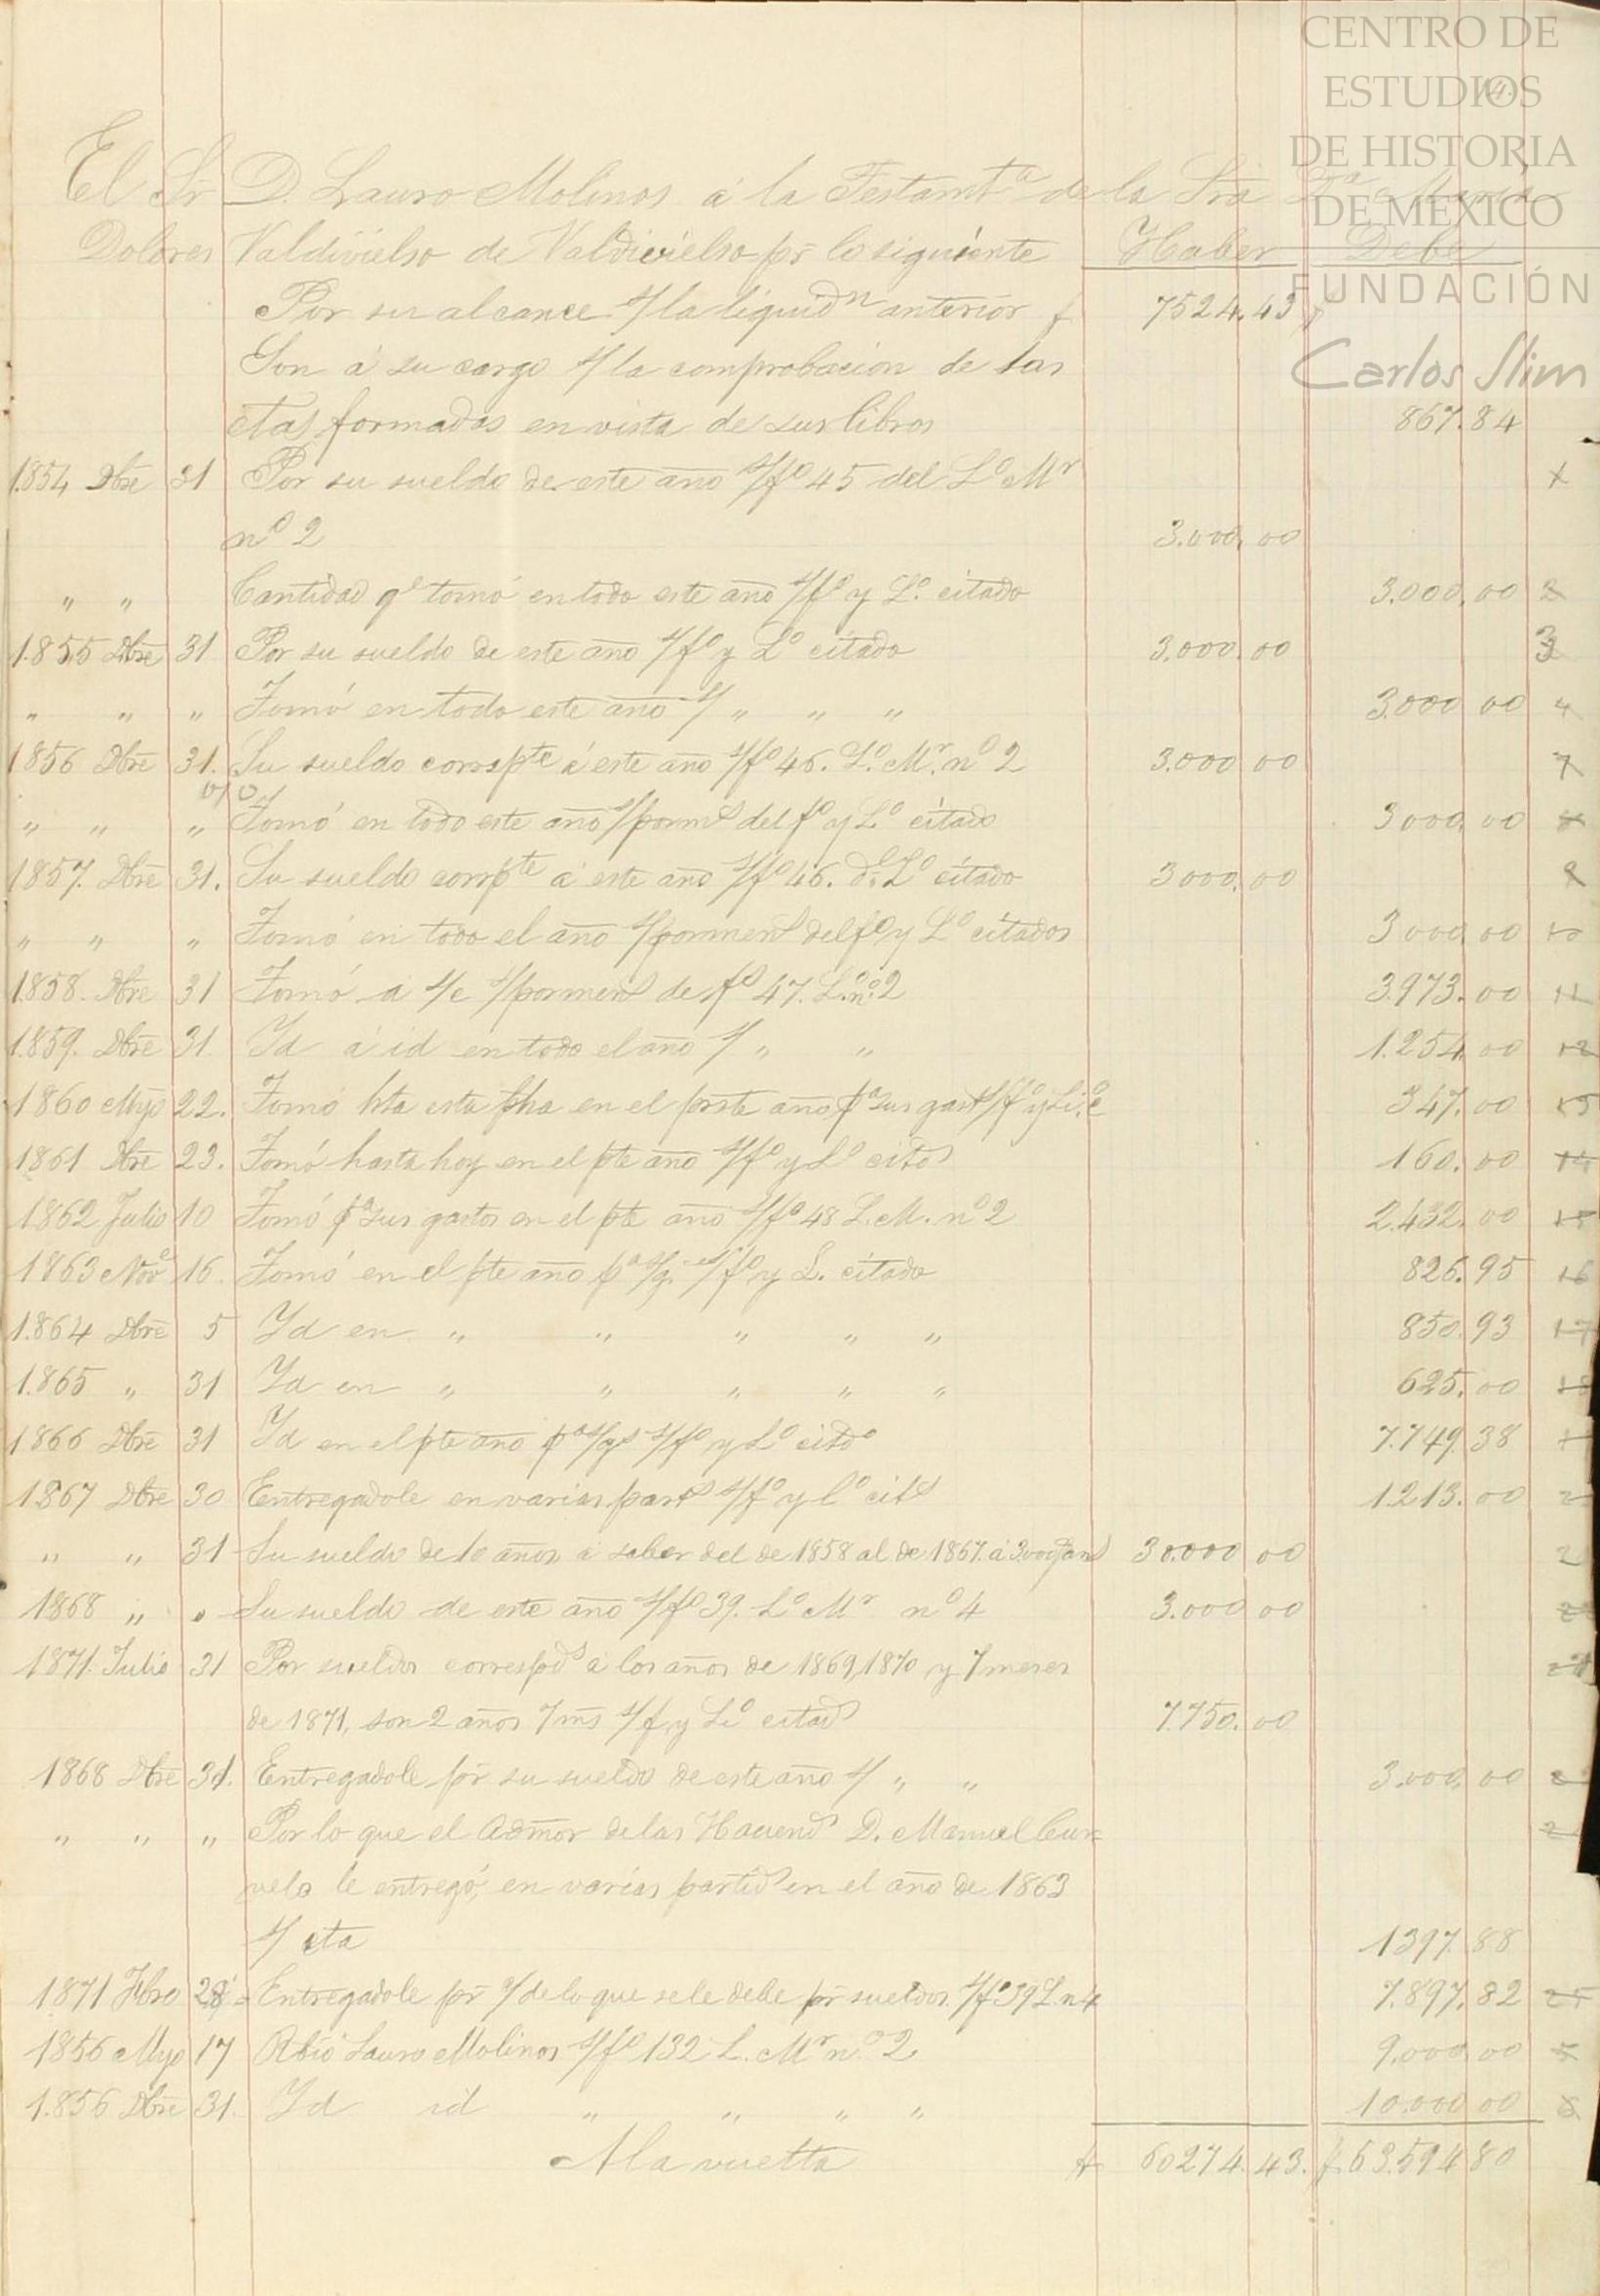 CENTRO DE
ESTUDIOS
DE HISTORIA
DE MÉXICO
FUNDACIÓN
Carlos Slim
14.
El Sr D. Lauro Molinos á la Testamta de la Sra Da María
Dolores Valdivielso de Valdivielso pr lo siguiente Haber Debe
Por su alcance s/ la liquidn anterior 7524.43
Son á su cargo s/ la comprobacion de las
ctas formadas en vista de sus libros 867.84
1.854 Dbre 31 Por su sueldo de este año s/fo 45 del Lo Mr 1
no 2 3.000.00
" " Cantidad qe tomó en todo este año s/fo y Lo citado 3.000.00 2
1.855 Dbre 31 Por su sueldo de este año s/fo y Lo citado 3.000.00 3
" " " Tomó en todo este año s/ " " " 3.000 00 4
1856 Dbre 31. Su sueldo corrspte á este año s/fo 46. Lo. Mr. no 2 3.000 00 7
" " " Tomó en todo este año s/pormd del fo y Lo citado 3000.00 8
1857. Dbre 31. Su sueldo corrpte á este año s/fo 46. do Lo citado 3000.00 9
" " " Tomó en todo el año s/pormend del fo y Lo citados 3000 00 10
1.858. Dbre 31 Tomó á s/c s/pormend de fo 47. L. no. 2 3.973.00 11
1.859. Dbre 31. Id á id en todo el año s/ " " 1.254.00 12
1860 Myo 22. Tomó hta esta fha en el prste año pa sus gast s/fo y Lo. c 347.00 13
1861 Dbre 23. Tomó hasta hoy en el pte año s/fo y Lo citds 160.00 14
1862 Julio 10 Tomó pa sus gastos en el pte año s/fo 48 L. M. no 2 2.432.00 15
1863 Nove 16. Tomó en el pte año pa s/g. s/fo y L. citado 826.95 16
1.864 Dbre 5 Id en " " " " " 850.93 17
1.865 " 31 Id en " " " " " 625.00 18
1866 Dbre 31 Id en el pte año pa s/gs s/fo y Lo citdo 7.749.38
1867 Dbre 30 Entregadole en varias parts s/fo y lo citd 1.213.00 2
" " 31 Su sueldo de 10 años á saber del de 1858 al de 1867. á 3000 30.000 00 2
1868 " " Su sueldo de este año s/fo 39. Lo Mr no 4 3.000 00
1871. Julio 31 Por sueldos correspods á los años de 1869, 1870 y 7 meses
de 1871, son 2 años 7 ms s/f. y Lo citads 7.750.00
1868 Dbre 31. Entregadole pr su sueldo de este año s/ " " 3.000,00 2
" " " Por lo que el Admor de las Haciends D. Manuel Cur= 2
vela le entregó, en varias partids en el año de 1863
s/ cta 1397.88
1871 Fbro 28 Entregadole pr s/ de lo que se le debe pr sueldos. s/fo 39 L. n 4 7.897.82 25
1856 Myo 17 Rbió Lauro Molinos s/fo 132 L. Mr no. 2 9.000.00 5
1.856 Dbre 31. Id id " " " " 10.000 00 6
A la vuelta 60274.43. 63.594 80